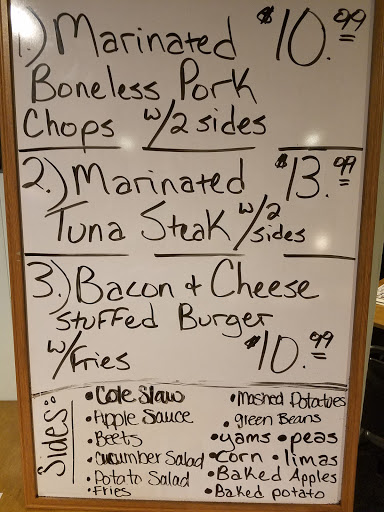 1.) Marinated $10.99
Boneless Pork
Chops w/2 sides
2.) Marinated $13.99
Tuna Steak w/2 sides
3.) Bacon & Cheese
Stuffed Burger
w/Fries $10.99
Sides:
• Cole Slaw
• Apple Sauce
• Beets
• Cucumber Salad
• Potato Salad
• Fries
• Mashed Potatoes
• green Beans
• yams • peas
• corn • limas
• Baked Apples
• Baked potato